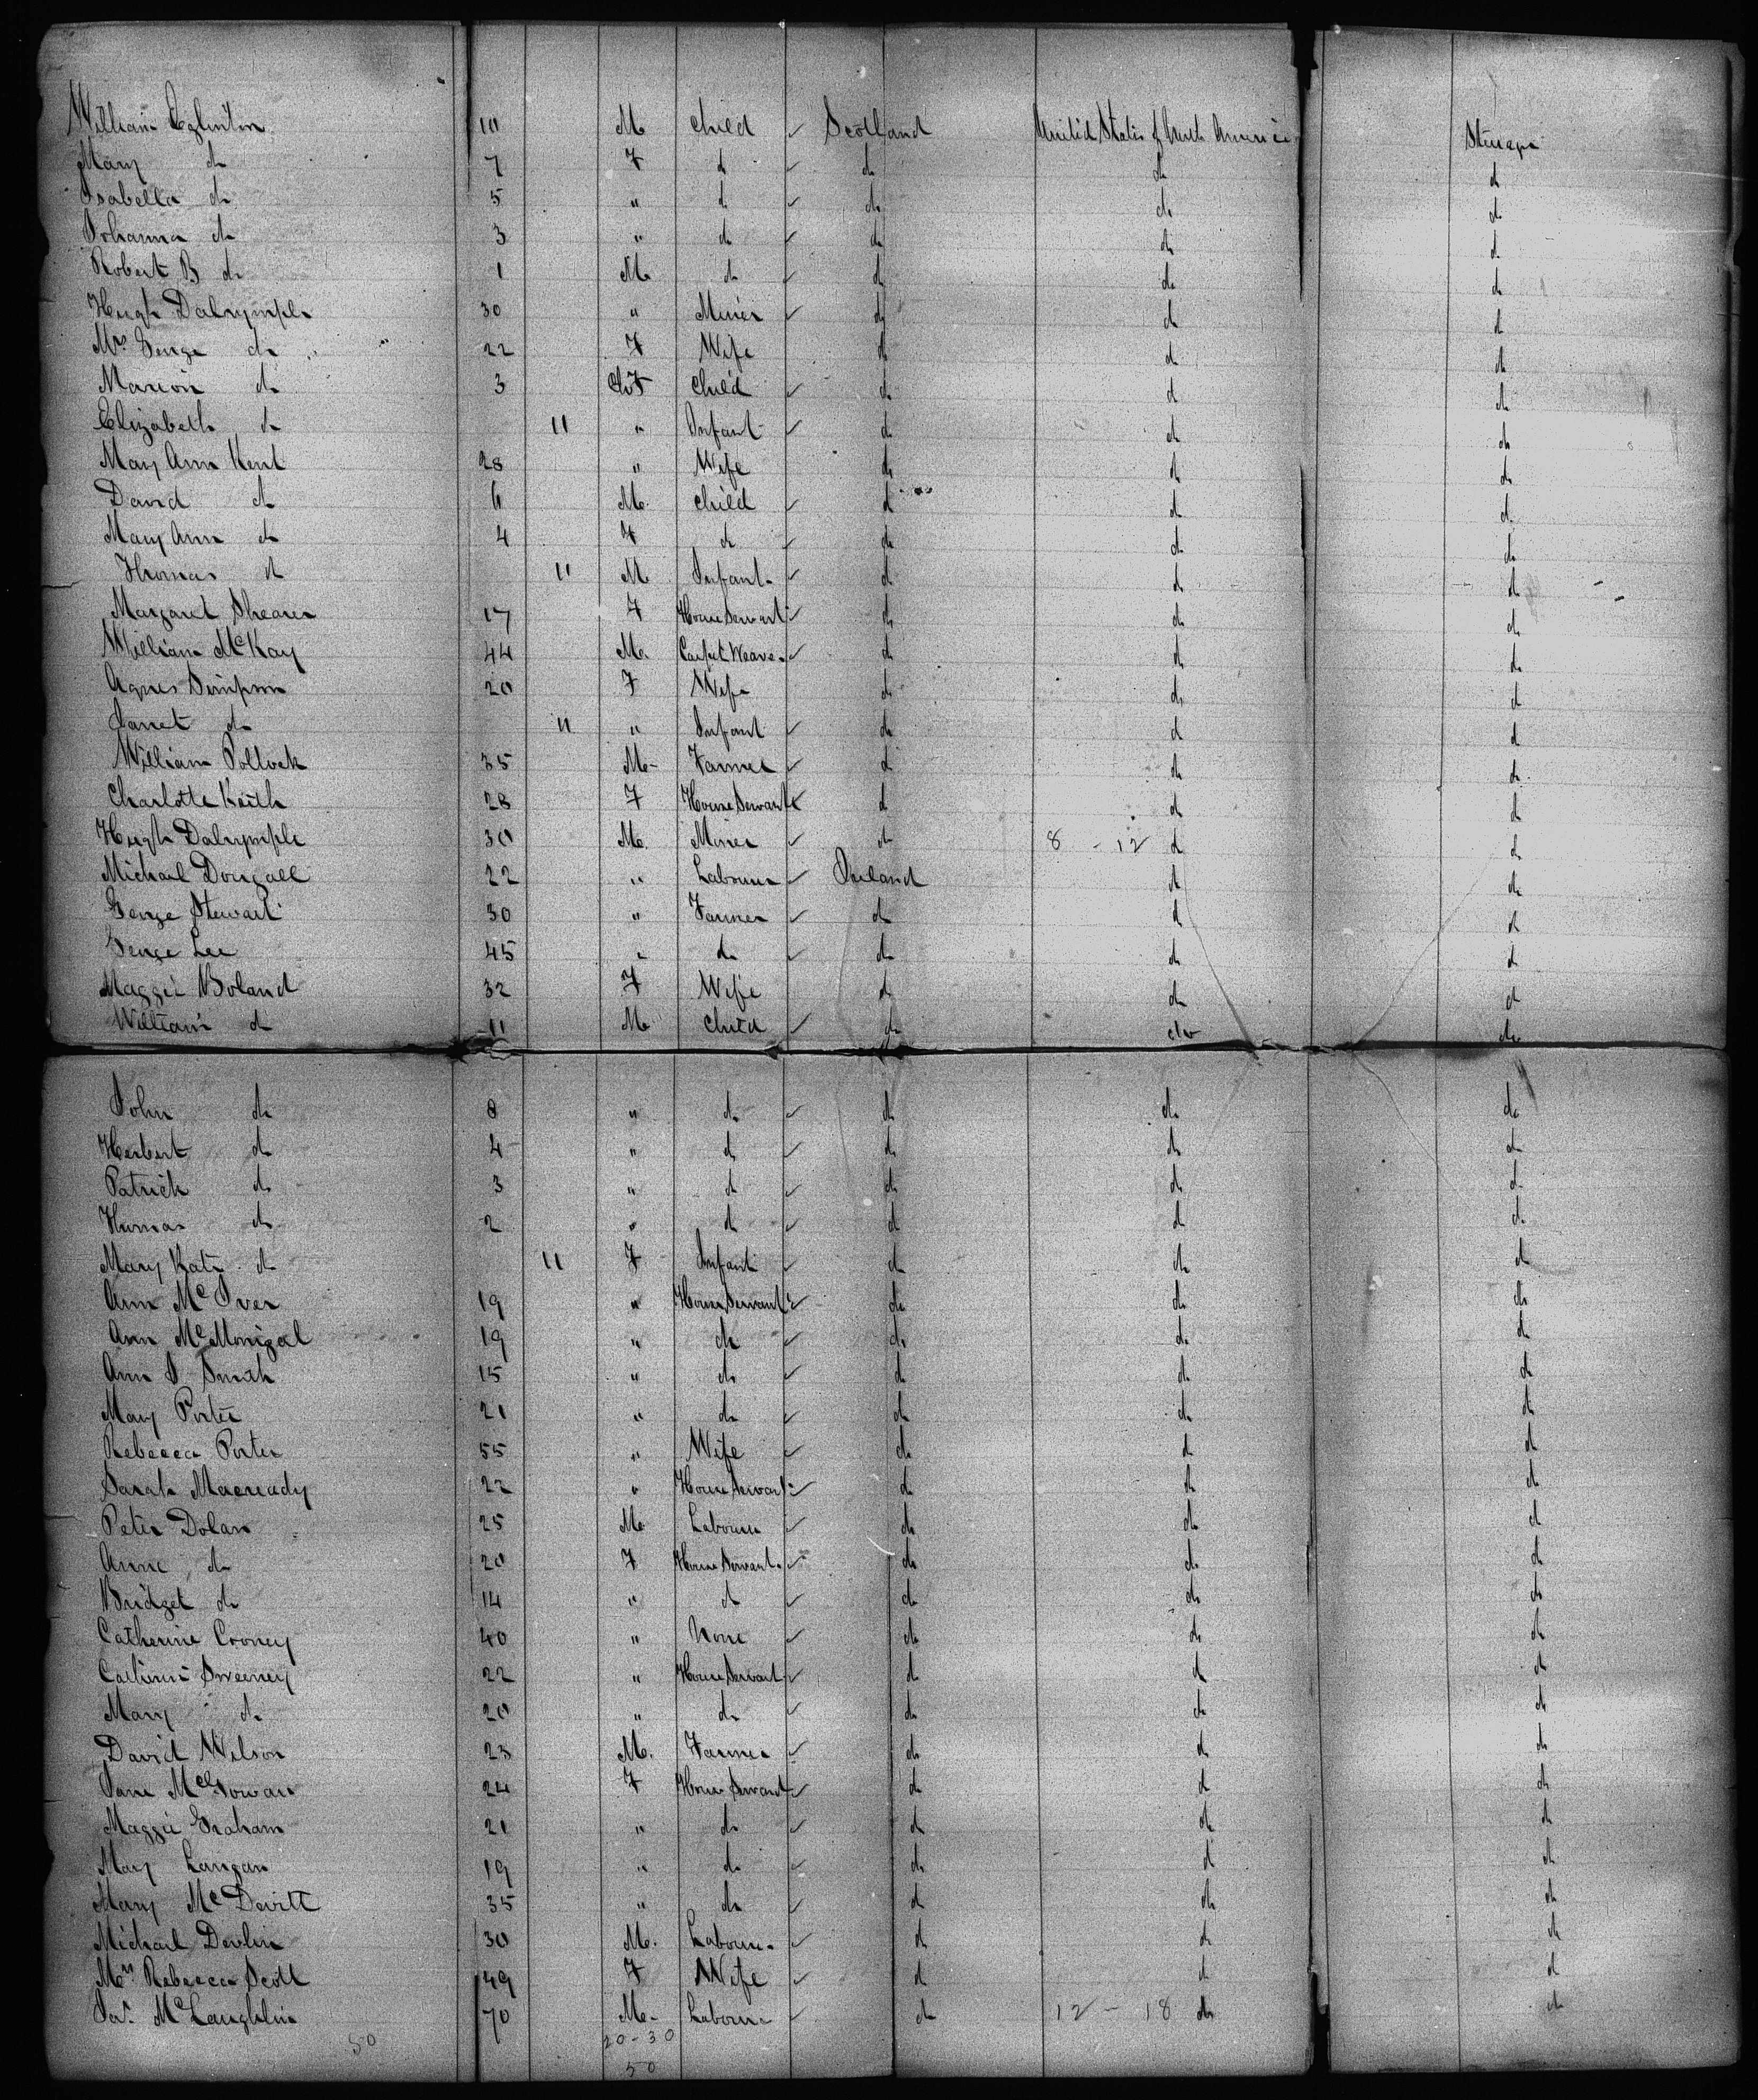 William Eglinton 10 M Child ✓ Scotland United States of North America Steerage
Mary do 7 F d ✓ do do d
Isabella do 5 " d ✓ do do d
Johanna do 3 " do ✓ do do d
Robert B do 1 M. do ✓ do do do
Hugh Dalrymple 30 " Miner ✓ do do d
Mrs George do 22 F Wife do do do
Marion do 3 F Child ✓ do d do
Elizabeth do 11 " Infant ✓ do do do
Mary Ann Kent 28 " Wife do do do
David do 6 M. Child ✓ d do do
Mary Ann do 4 F do ✓ do do do
Thomas do 11 M Infant ✓ d do do
Margaret Shearer 17 F House Servant ✓ do do do
William McKay 44 M. Carpet Weaver ✓ d do do
Agnes Simpson 20 F Wife do do d
Janet do 11 " Infant ✓ do d d
William Pollock 35 M- Farmer ✓ d do do
Charlotte Keith 28 F House Servant ✓ d do do
Hugh Dalrymple 30 M. Miner ✓ do 8 - 12 d d
Michael Dougall 22 " Labourer ✓ Ireland d do
George Stewart 30 " Farmer ✓ do d do
George Lee 45 " do ✓ do do d
Maggie Boland 32 F Wife do do d
William do 11 M Child ✓ do do do
John do 8 " do ✓ do do do
Herbert do 4 " d ✓ do do do
Patrick do 3 " d ✓ do do d
Thomas do 2 " d ✓ d d do
Mary Kate do 11 F Infant ✓ do do d
Ann McIver 19 " House Servant ✓ do do do
Ann McMonigal 19 " do ✓ do do do
Ann J Smith 15 " do ✓ d do do
Mary Porter 21 " do ✓ do do do
Rebecca Porter 55 " Wife ✓ do d do
Sarah Macready 22 " House Servant ✓ do do do
Peter Dolan 25 M Labourer ✓ do do d
Anne do 20 F House Servant ✓ do do do
Bridget do 14 " d ✓ do do do
Catherine Croney 40 " None ✓ do do do
Catherine Sweeney 22 " House Servant ✓ d d do
Mary do 20 " do ✓ do do do
David Wilson 23 M. Farmer ✓ do d do
Jane McGowan 24 F House Servant ✓ d d do
Maggie Graham 21 " do ✓ d do do
Mary Langan 19 " do ✓ do d do
Mary McDevitt 35 " do ✓ d do do
Michael Devlin 30 M. Labourer ✓ d do do
Mrs Rebecca Scott 49 F Wife ✓ d d d
Jas. McLaughlin 70 M- Labourer ✓ do 12 - 18 do do
50 20-30
50